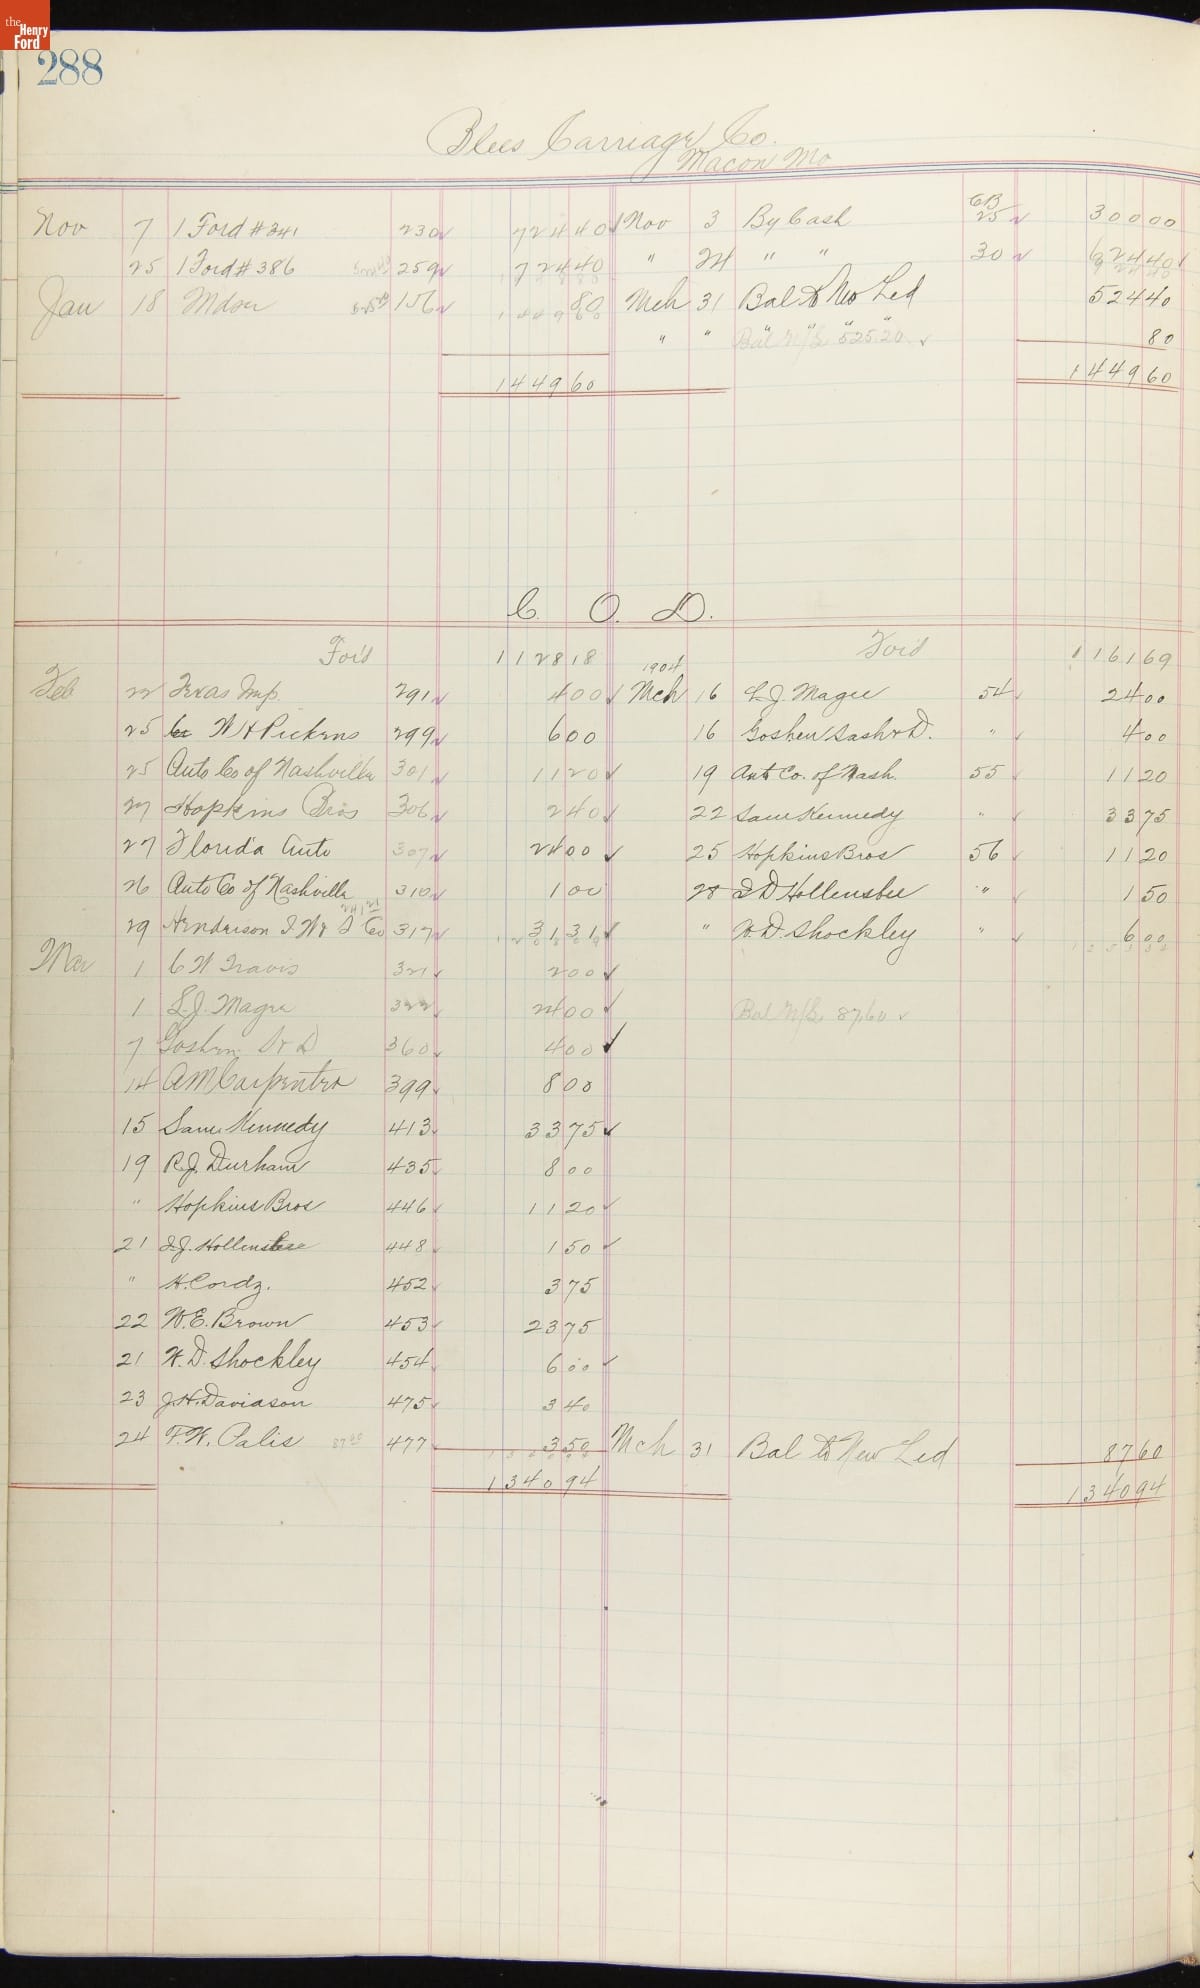 the Henry Ford
288
Blees Carriage Co.
Macon Mo
Nov 7 1 Ford #341 230 724 40 Nov 3 By Cash CB 25 300 00
25 1 Ford #386 259 724 40 " 24 " " 30 624 40
Jan 18 Mdse 156 80 Mch 31 Bal to New Led 524 40
" " " " " " 80
Bal N/L 525.20
1449 60 1449 60
C. O. D.
For'd 1128 18 For'd 1161 69
Feb 22 Texas Imp. 291 4 00 1904 Mch 16 L.J. Magee 54 24 00
25 W H Pickens 299 6 00 16 Goshen Sash & D. " 4 00
25 Auto Co of Nashville 301 11 20 19 Auto Co. of Nash. 55 11 20
27 Hopkins Bros 306 2 40 22 Sam Kennedy " 33 75
27 Florida Auto 307 24 00 25 Hopkins Bros 56 11 20
26 Auto Co of Nashville 310 1 00 28 I D Hollensbee " 1 50
29 Henderson I. W & S Co 317 31 31 " W.D. Shockley " 6 00
Mar 1 C W Travis 321 2 00
1 L.J. Magee 322 24 00 Bal N/L 87.60
7 Goshen S & D 360 4 00
14 A M Carpenter 399 8 00
15 Sam Kennedy 413 33 75
19 R.J. Durham 435 8 00
" Hopkins Bros 446 11 20
21 I.J. Hollensbee 448 1 50
" H. Cordz. 452 3 75
22 W.E. Brown 453 23 75
21 W.D. Shockley 454 6 00
23 J.H. Davidson 475 3 40
24 F.W. Palis 87 60 477 3 50 Mch 31 Bal to New Led 87 60
1340 94 1340 94